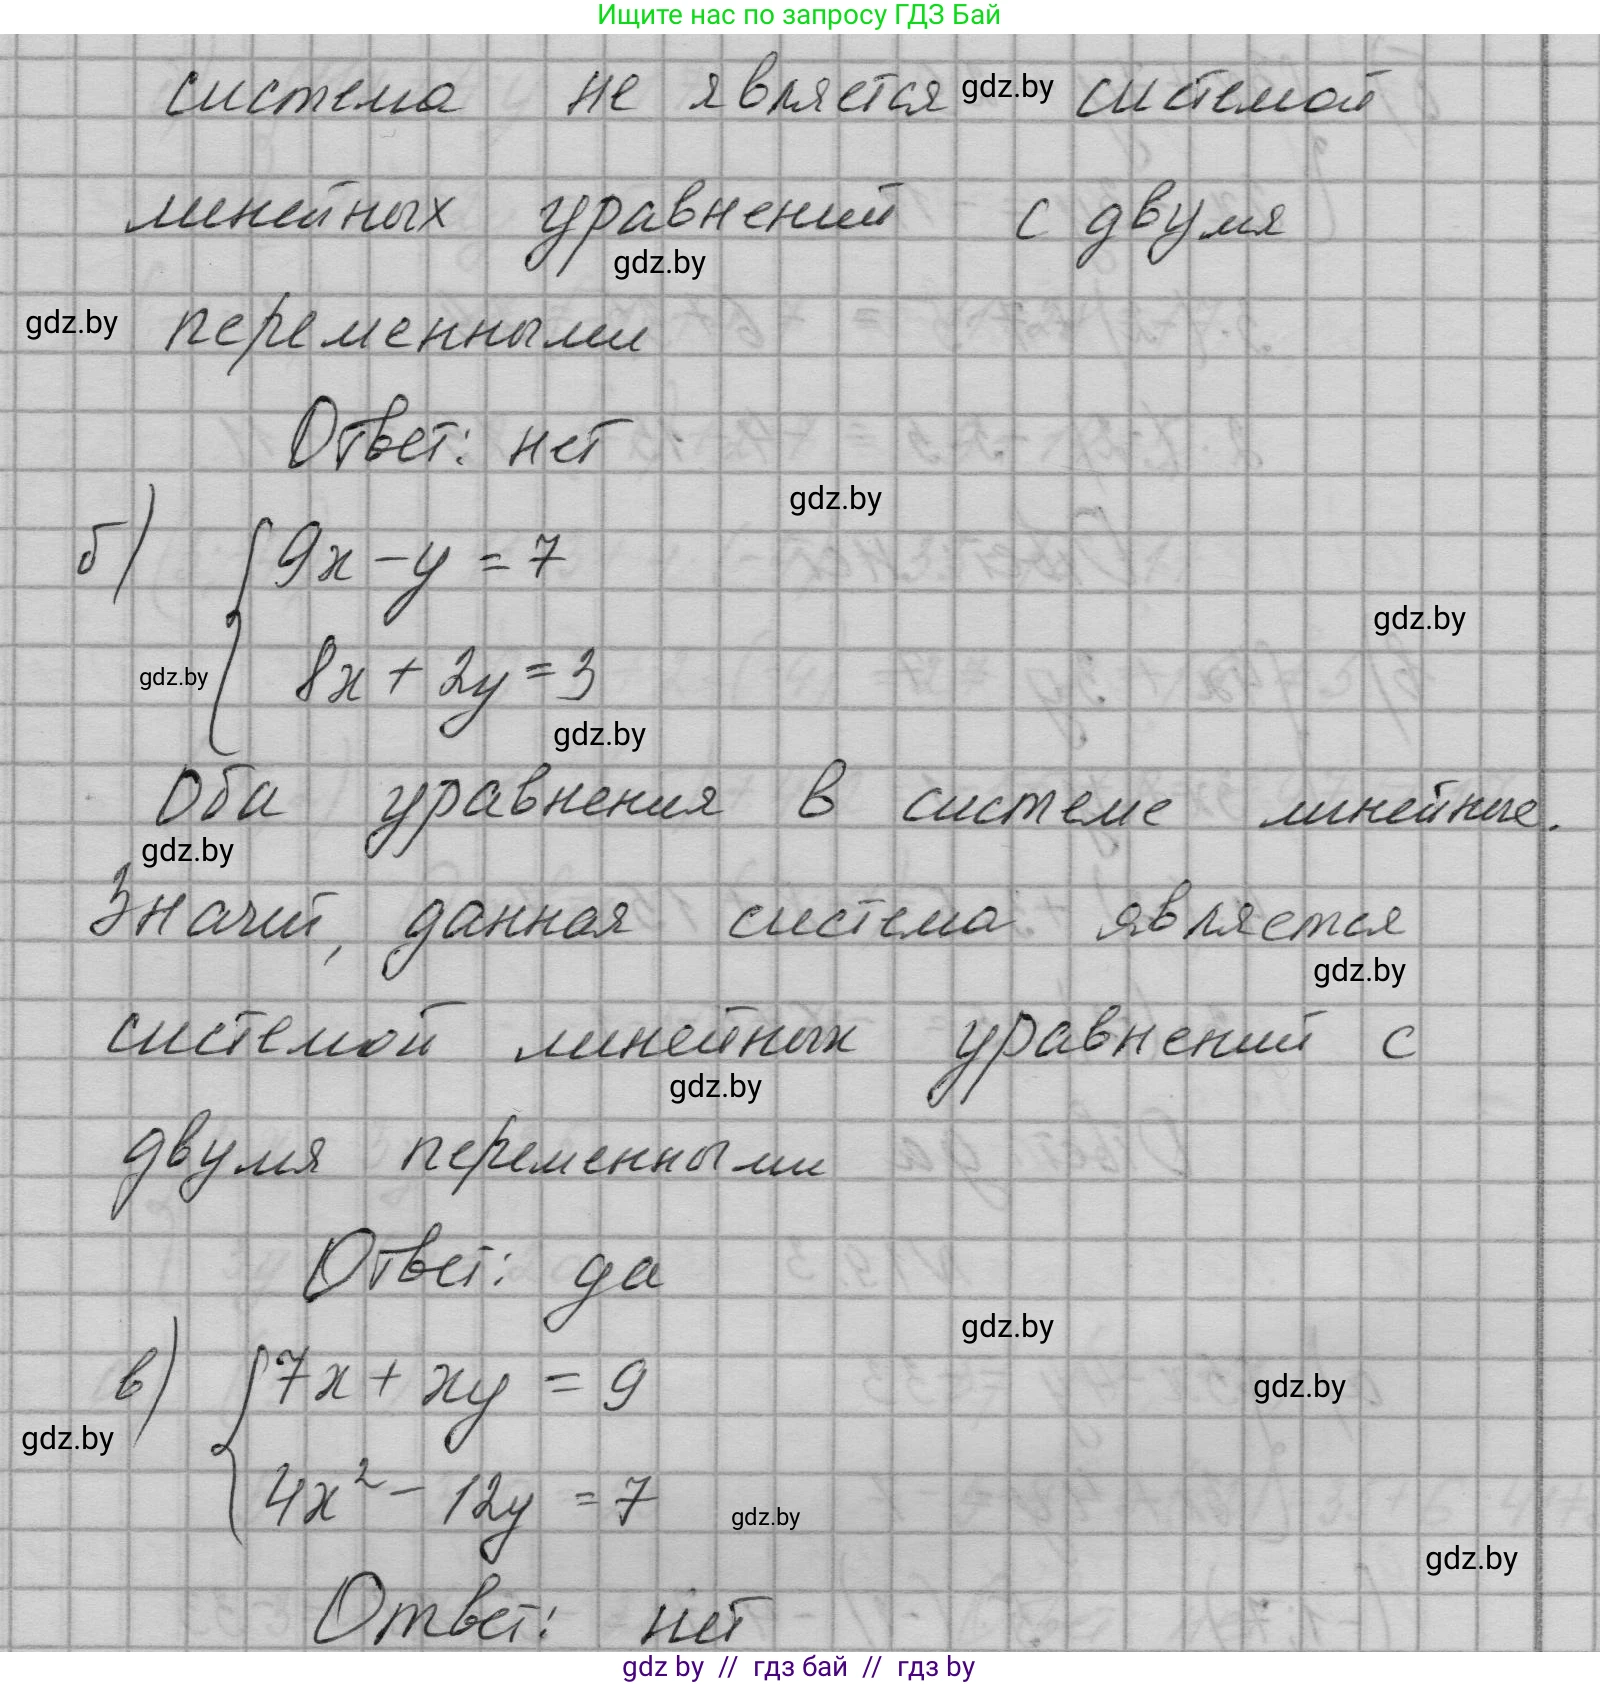 Ищите нас по запросу ГДЗ Бай
система не является gdz.by системой
линейных уравнений с двумя
gdz.by
gdz.by переменными
Ответ: нет
gdz.by
б) { 9x - y = 7
gdz.by
8x + 2y = 3
gdz.by
gdz.by
Оба уравнения в системе линейные.
gdz.by
Значит, данная система является
gdz.by
системой линейных уравнений с
gdz.by
двумя переменными
Ответ: да
gdz.by
в) { 7x + xy = 9
gdz.by
gdz.by
4x² - 12y = 7
gdz.by
gdz.by
Ответ: нет
gdz by // гдз бай // gdz by